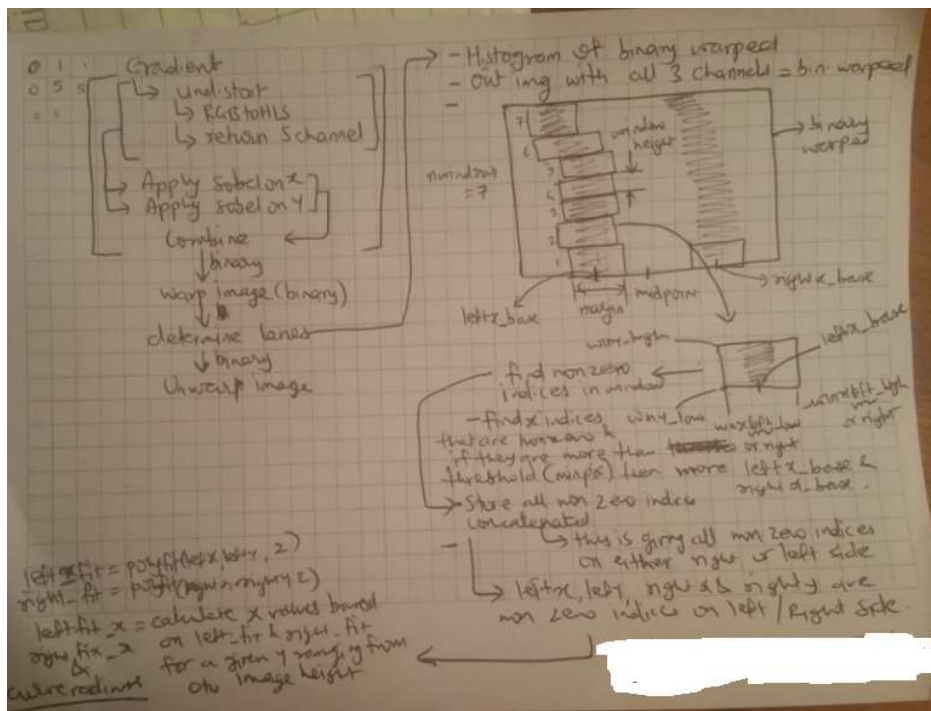 0 1 1
0 5 5
Gradient
↳ Undistort
↳ RGB to HLS
↳ return S channel
→ Apply sobel on x
→ Apply sobel on Y
Combine
↓ binary
warp image (binary)
↓
determine lanes
↓ binary
Unwarp image
- Histogram of binary warped
- Out img with all 3 channels = bin. warped
-
nwindows
= 7
7
6
5
4
3
2
1
window
height
binary
warped
leftx_base
margin
midpoint
rightx_base
winy_high
leftx_base
find non zero
indices in window
winy_low
winxleft_low
or right
winxleft_high
or right
- find x indices
that are nonzero &
if they are more than
threshold (minpix) then move leftx_base &
rightx_base.
→ Store all non zero indices
concatenated
↳ this is giving all non zero indices
on either right or left side
-
→ leftx, lefty, rightx & righty are
non zero indices on left / Right side.
left_fit = polyfit(leftx, lefty, 2)
right_fit = polyfit(rightx, righty, 2)
leftfit_x = calculate x values based
right_fix_x on left_fit & right_fit
& for a given y ranging from
curve radius 0 to image height